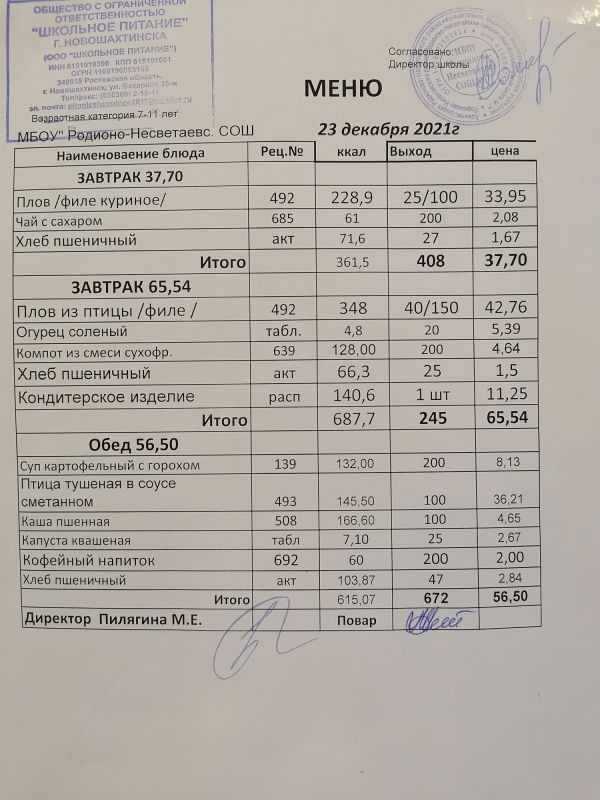 ОБЩЕСТВО С ОГРАНИЧЕННОЙ
ОТВЕТСТВЕННОСТЬЮ
"ШКОЛЬНОЕ ПИТАНИЕ"
Г. НОВОШАХТИНСКА
(ООО "ШКОЛЬНОЕ ПИТАНИЕ")
ИНН 6151019396 КПП 615101001
ОГРН
Ростовская область,
г. Новошахтинск, ул. Базарная
Тел/факс: (886369) 2-16-11
эл. почта:
Возрастная категория 7-11 лет
МБОУ" Родионо-Несветаевс. СОШ
Согласовано:
Директор школы
МБОУ
СОШ
МЕНЮ
23 декабря 2021г
Наименоваение блюда Рец.№ ккал Выход цена
ЗАВТРАК 37,70
Плов /филе куриное/ 492 228,9 25/100 33,95
Чай с сахаром 685 61 200 2,08
Хлеб пшеничный акт 71,6 27 1,67
Итого 361,5 408 37,70
ЗАВТРАК 65,54
Плов из птицы /филе / 492 348 40/150 42,76
Огурец соленый табл. 4,8 20 5,39
Компот из смеси сухофр. 639 128,00 200 4,64
Хлеб пшеничный акт 66,3 25 1,5
Кондитерское изделие расп 140,6 1 шт 11,25
Итого 687,7 245 65,54
Обед 56,50
Суп картофельный с горохом 139 132,00 200 8,13
Птица тушеная в соусе
сметанном 493 145,50 100 36,21
Каша пшенная 508 166,60 100 4,65
Капуста квашеная табл 7,10 25 2,67
Кофейный напиток 692 60 200 2,00
Хлеб пшеничный акт 103,87 47 2,84
Итого 615,07 672 56,50
Директор Пилягина М.Е. Повар